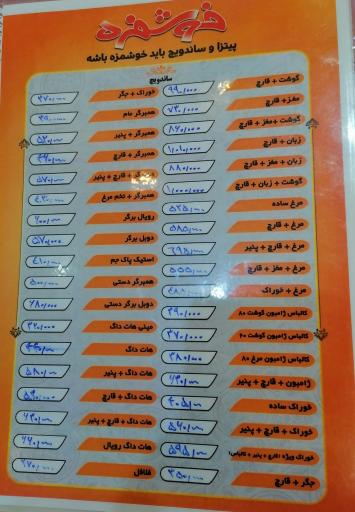 خوشمزه
پیتزا و ساندویچ باید خوشمزه باشه
ساندویچ
گوشت + قارچ ۹۹۰/۰۰۰
مغز + قارچ ۷۳۰/۰۰۰
گوشت + مغز + قارچ ۸۶۰/۰۰۰
زبان + قارچ
زبان + مغز + قارچ ۸۸۰/۰۰۰
گوشت + زبان + قارچ
مرغ ساده ۵۲۵/۰۰۰
مرغ + قارچ ۵۸۵/۰۰۰
مرغ + قارچ + پنیر ۶۹۵/۰۰۰
مرغ + مغز + قارچ ۵۵۵/۰۰۰
مرغ + خوراک
کالباس ژامبون گوشت ۸۰ ۳۹۰/۰۰۰
کالباس ژامبون گوشت ۶۰ ۳۷۰/۰۰۰
کالباس ژامبون مرغ ۸۰ ۳۸۰/۰۰۰
ژامبون + قارچ + پنیر ۶۳۰/۰۰۰
خوراک ساده ۴۰۵/۰۰۰
خوراک + قارچ + پنیر ۵۶۰/۰۰۰
خوراک ویژه (قارچ + پنیر + کالباس) ۵۹۵/۰۰۰
جگر + قارچ ۳۵۰/۰۰۰
خوراک + جگر ۳۷۰/۰۰۰
همبرگر مام
همبرگر + پنیر ۵۲۰/۰۰۰
همبرگر + قارچ
همبرگر + قارچ + پنیر ۵۷۰/۰۰۰
همبرگر + تخم مرغ ۴۳۰/۰۰۰
رویال برگر ۶۰۰/۰۰۰
دوبل برگر ۵۷۰/۰۰۰
استیک پاک جم ۴۱۰/۰۰۰
همبرگر دستی ۵۰۰/۰۰۰
دوبل برگر دستی ۶۸۰/۰۰۰
مینی هات داگ ۳۲۰/۰۰۰
هات داگ
هات داگ + پنیر ۵۸۰/۰۰۰
هات داگ + قارچ
هات داگ + قارچ + پنیر ۶۳۰/۰۰۰
هات داگ رویال ۶۶۰/۰۰۰
فلافل